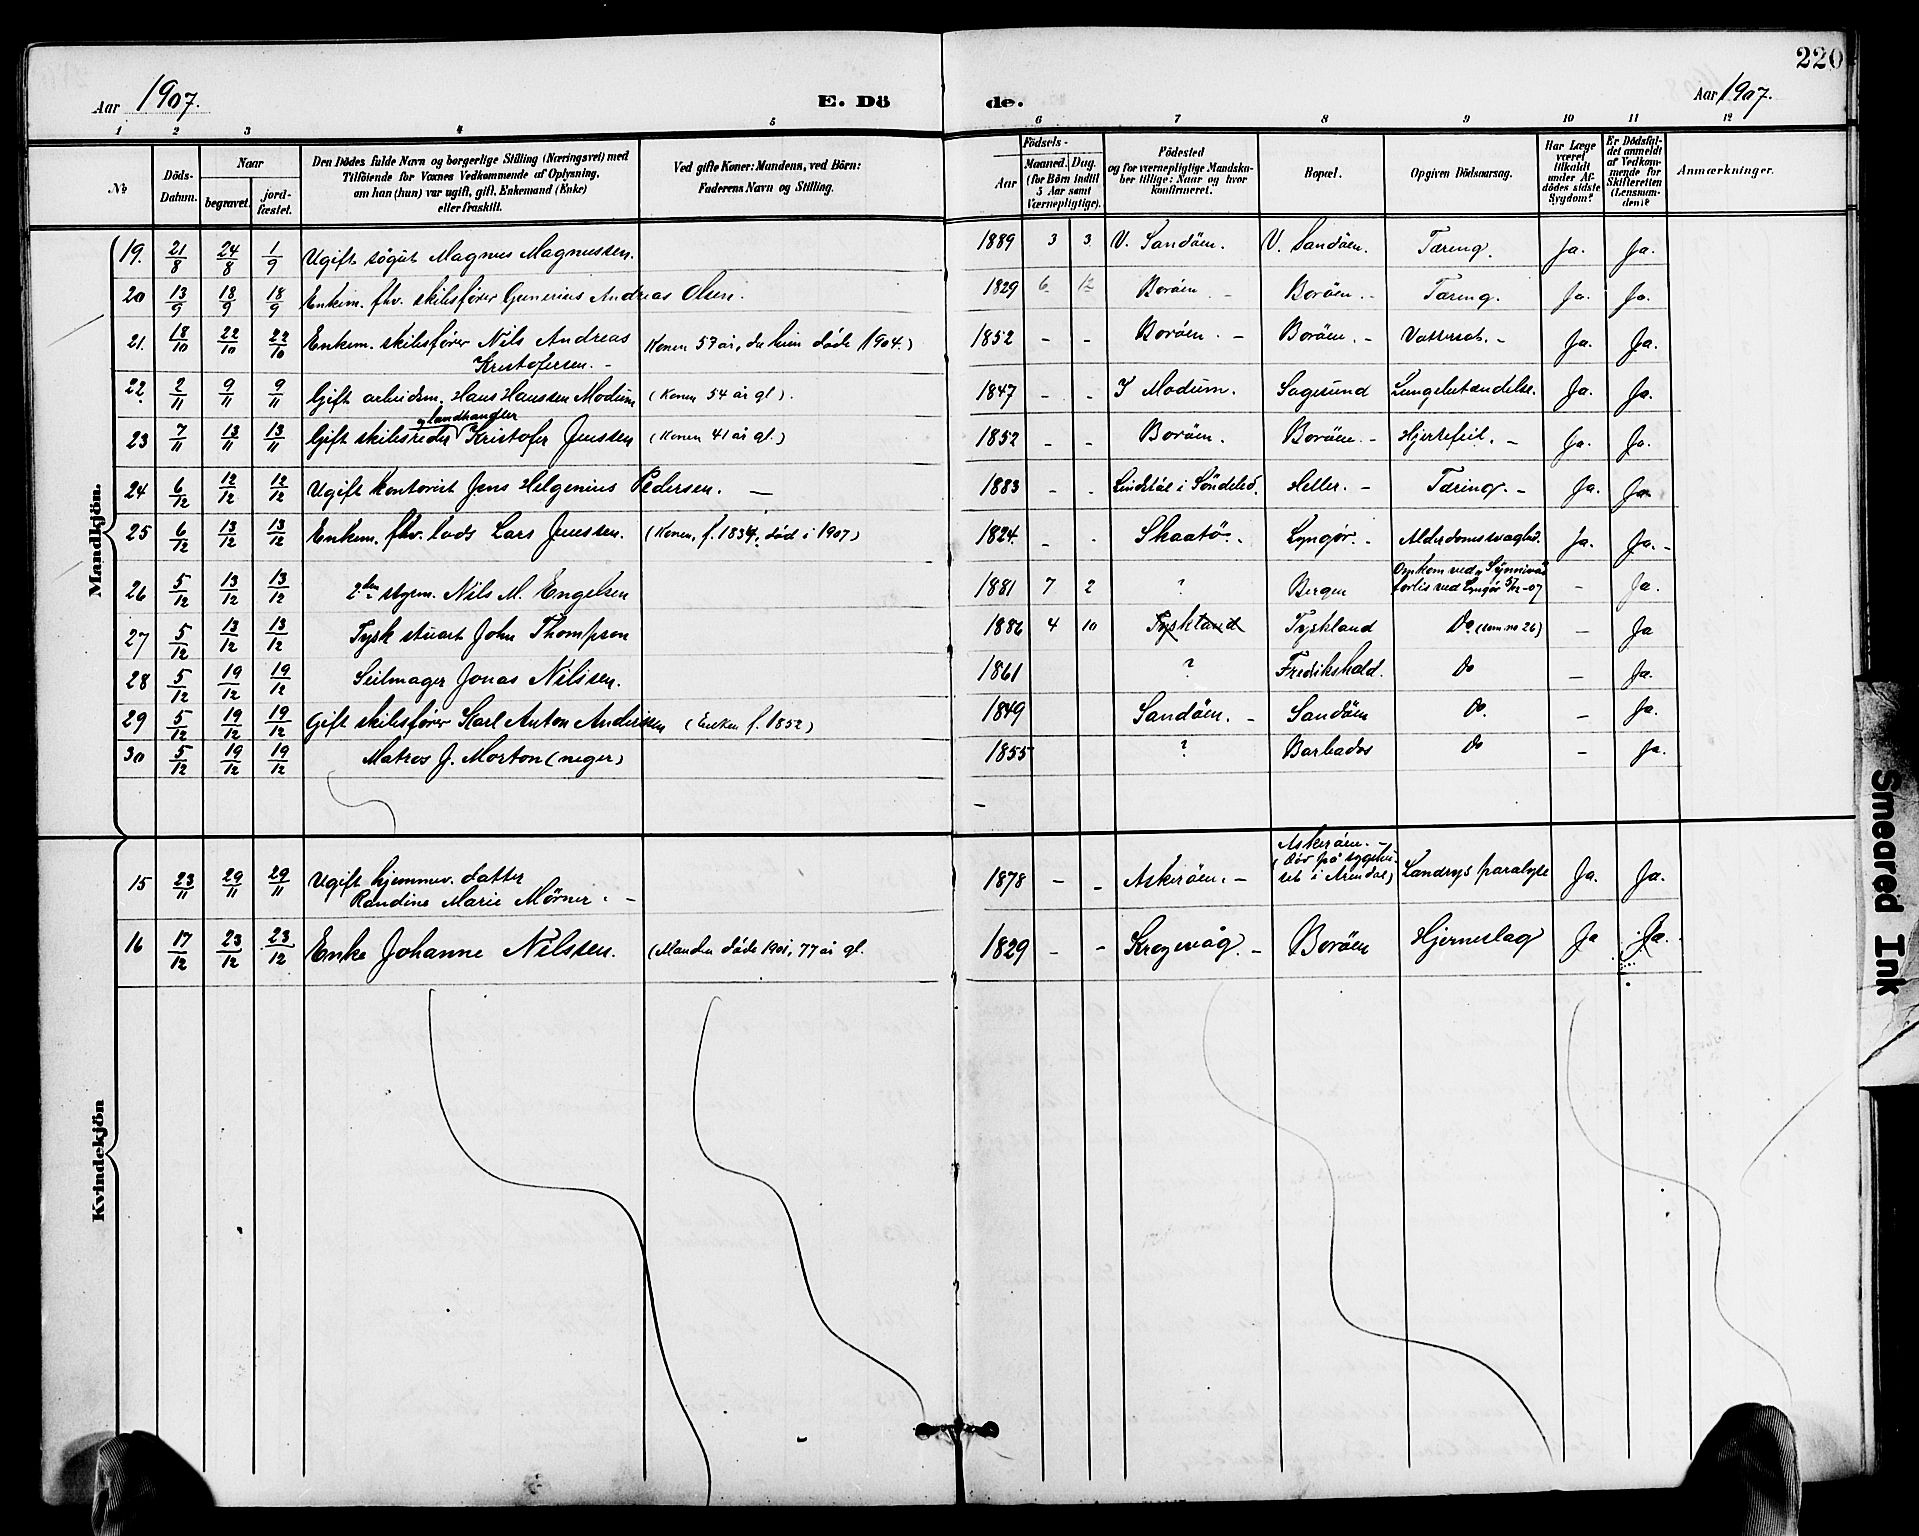 220
Aar 1907. E. Dö de. Aar 1907.
1 2 3 4 5 6 7 8 9 10 11 12
No
Döds-Datum.
Naar
begravet. jord-fæstet.
Den Dödes fulde Navn og borgerlige Stilling (Næringsvei) med
Tilföiende for Voxnes Vedkommende af Oplysning,
om han (hun) var ugift, gift, Enkemand (Enke)
eller fraskilt.
Ved gifte Koner: Mandens, ved Börn:
Faderens Navn og Stilling.
Födsels-
Aar Maaned. Dag.
(for Börn indtil
3 Aar samt
Værnepligtige).
Födested
og for værnepligtige Mandska-
ber tillige: Naar og hvor
konfirmeret.
Bopæl.
Opgiven Dödsaarsag.
Har Læge
været
tilkaldt
under Af-
dödes sidste
Sygdom?
Er Dödsfal-
det anmeldt
af Vedkom-
mende for
Skifteretten
(Lensman-
den)?
Anmærkninger.
Mandkjön.
19. 21/8 24/8 1/9 Ugift søgut Magnus Magnussen. 1889 3 3 V. Sandöen. V. Sandöen. Tæring. Ja. Ja.
20 13/9 18/9 18/9 Enkem. fhv. skibsfører Gunerius Andreas Olsen. 1829 6 12 Boröen. - Boröen. - Tæring. Ja. Ja.
21. 18/10 22/10 22/10 Enkem. skibsfører Nils Andreas Konen 57 år, da hun døde 1904.) 1852 - - Boröen. - Boröen. - Vattersot. - Ja. Ja.
Kristofersen. -
22. 2/11 9/11 9/11 Gift arbeidsm. Hans Hanssen Modum (Konen 54 år gl). 1847 - - I Modum. Sagesund Lungebetændelse. Ja. Ja.
og landhandler
23 7/11 13/11 13/11 Gift skibsreder Kristofer Jenssen (Konen 41 år gl.) 1852 - - Boröen. Boröen. - Hjertefeil. - Ja. Ja.
24 6/12 12/12 12/12 Ugift kontorist Jens Helgenius Pedersen. - 1883 - - Lindstöl i Söndeled. Heller. - Tæring. - Ja. Ja
25 6/12 13/12 13/12 Enkem. fhv. lods Lars Jenssen. (Konen, f. 1834, död i 1907) 1824. - - Skaatö. Lyngør. - Alderdomssvaghed. Ja. Ja. -
26 5/12 13/12 13/12 2den styrm. Nils M. Engelsen 1881 7 2 ? Bergen Omkom ved "Synnivas
forlis ved Lyngör 5/12-07 - Ja.
27 5/12 13/12 13/12 Tysk stuart John Thompson 1886 4 10 Tyskland Tyskland Do (som no 26) - Ja
28 5/12 19/12 19/12 Seilmager Jonas Nilssen. 1861 ? Fredrikshald. Do - Ja.
29 5/12 19/12 19/12 Gift skibsfører Karl Anton Anderssen (Enken f. 1852) 1849 Sandöen. - Sandöen Do. - Ja.
30 5/12 19/12 19/12 Matros J. Morton (neger) 1855 ? Barbados Do - Ja.
Kvindekjön
15 23/11 29/11 29/11 Ugift hjemmev. datter
Randine Marie Mörner. - 1878 - - Askeröen. - Askeröen. -
(død på sygehu-
set i Arendal) Landrys paralyse Ja. Ja.
16 17/12 23/12 23/12 Enke Johanne Nilssen. (Manden døde 1901, 77 år gl. 1829 - - Krogevåg. - Boröen Hjerneslag Ja Ja.
Smeared Ink